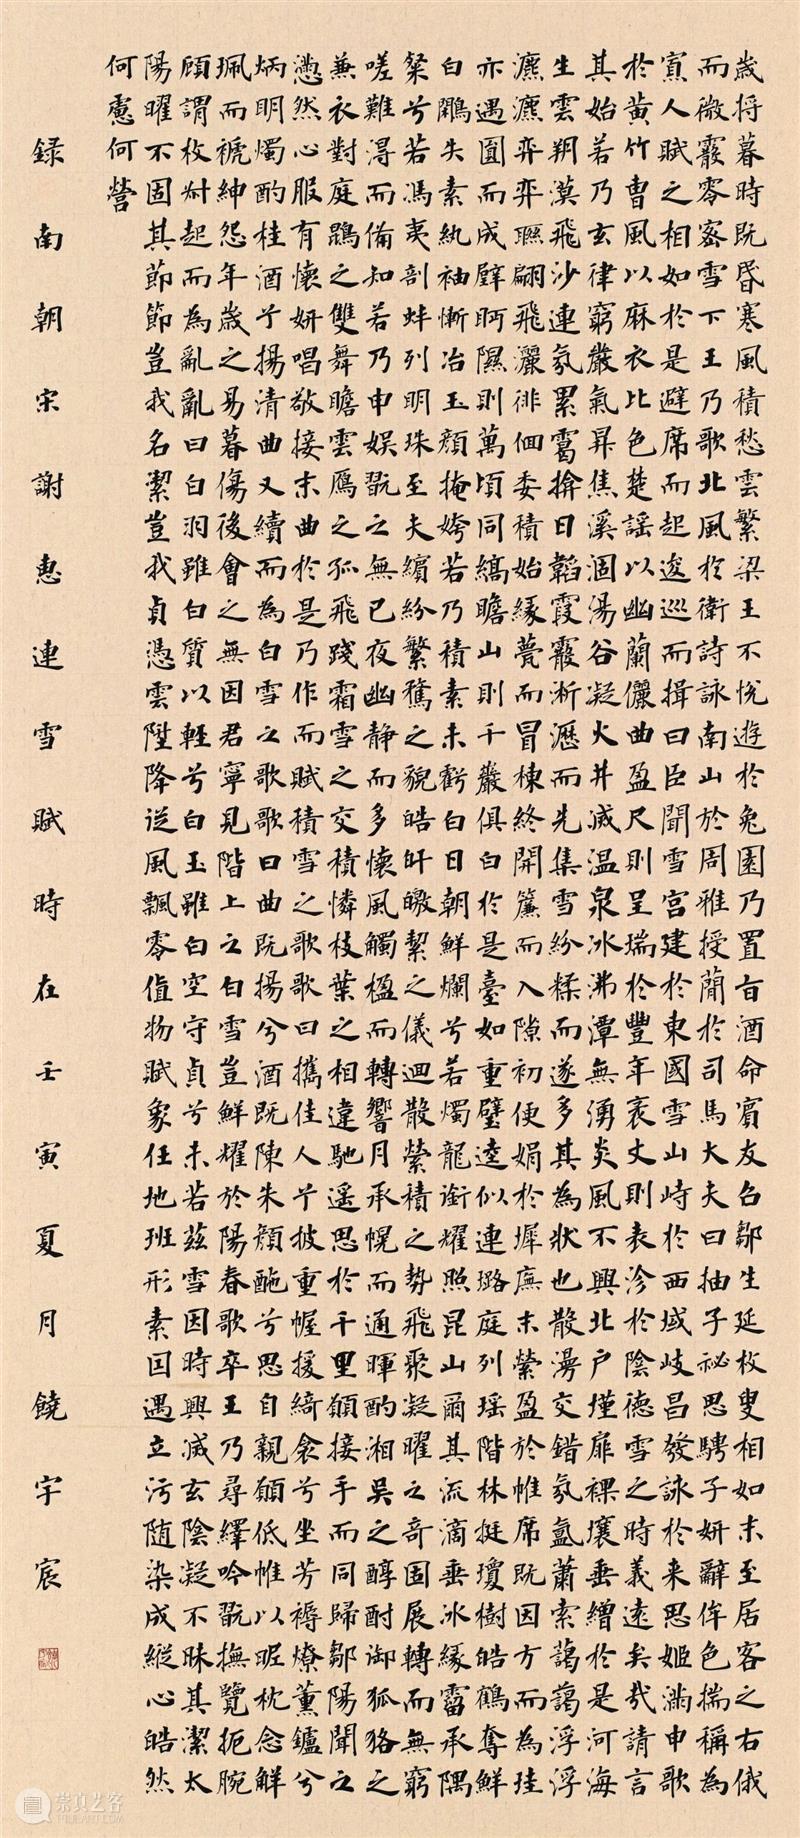 歲将暮時既昏寒風積愁雲繁梁王不悅遊於兔園乃置旨酒命賓友召鄒生延枚叟相如末至居客之右俄
而微霰零密雪下王乃歌北風於衛詩詠南山於周雅授簡於司馬大夫曰抽子祕思騁子妍辭侔色揣稱為
寡人賦之相如於是避席而起逡巡而揖曰臣聞雪宮建於東國雪山峙於西域岐昌發詠於来思姬滿申歌
於黄竹曹風以麻衣比色楚謠以幽蘭儷曲盈尺則呈瑞於豐年袤丈則表沴於陰德雪之時義遠矣哉請言
其始若乃玄律窮嚴氣昇焦溪涸湯谷凝火井滅温泉冰沸潭無湧炎風不興北户墐扉裸壤垂繒於是河海
生雲朔漠飛沙連氛累靄揜日韜霞霰淅瀝而先集雪紛糅而遂多其為狀也散漫交錯氛氲蕭索藹藹浮浮
瀌瀌弈弈聮翩飛灑徘徊委積始緣甍而冒棟終開簾而入隙初便娟於墀廡末縈盈於帷席既因方而為珪
亦遇圓而成璧眄隰則萬頃同縞瞻山則千巖俱白於是臺如重璧逵似連璐庭列瑶階林挺瓊樹皓鶴奪鮮
白鷴失素紈袖慚冶玉顏掩姱若乃積素未虧白日朝鮮爛兮若燭龍銜耀照昆山爾其流滴垂冰緣霤承隅
粲兮若馮夷剖蚌列明珠至夫繽紛繁騖之貌皓旰曒絜之儀迴散縈積之勢飛聚凝曜之奇固展轉而無窮
嗟難得而備知若乃申娱翫之無已夜幽静而多懷風觸楹而轉響月承幌而通暉酌湘吴之醇酎御狐狢之
兼衣對庭鵾之雙舞瞻雲鴈之孤飛踐霜雪之交積憐枝葉之相違馳遥思於千里願接手而同歸鄒陽聞之
懣然心服有懷妍唱敬接末曲於是乃作而賦積雪之歌歌曰攜佳人兮披重幄援綺衾兮坐芳褥燎薰鑪兮
炳明燭酌桂酒兮揚清曲又續而為白雪之歌歌曰曲既揚兮酒既陳朱顏酡兮思自親願低帷以昵枕念解
珮而褫紳怨年歲之易暮傷後會之無因君寧見階上之白雪豈鮮耀於陽春歌卒王乃尋繹吟翫撫覽扼腕
顧謂枚叔起而為亂亂曰白羽雖白質以輕兮白玉雖白空守貞兮未若茲雪因時興滅玄陰凝不昧其潔太
陽曜不固其節節豈我名潔豈我貞憑雲陞降從風飄零值物賦象任地班形素因遇立污随染成縱心皓然
何慮何營
録南朝宋謝惠連雪賦時在壬寅夏月饒宇宸
崇真艺客